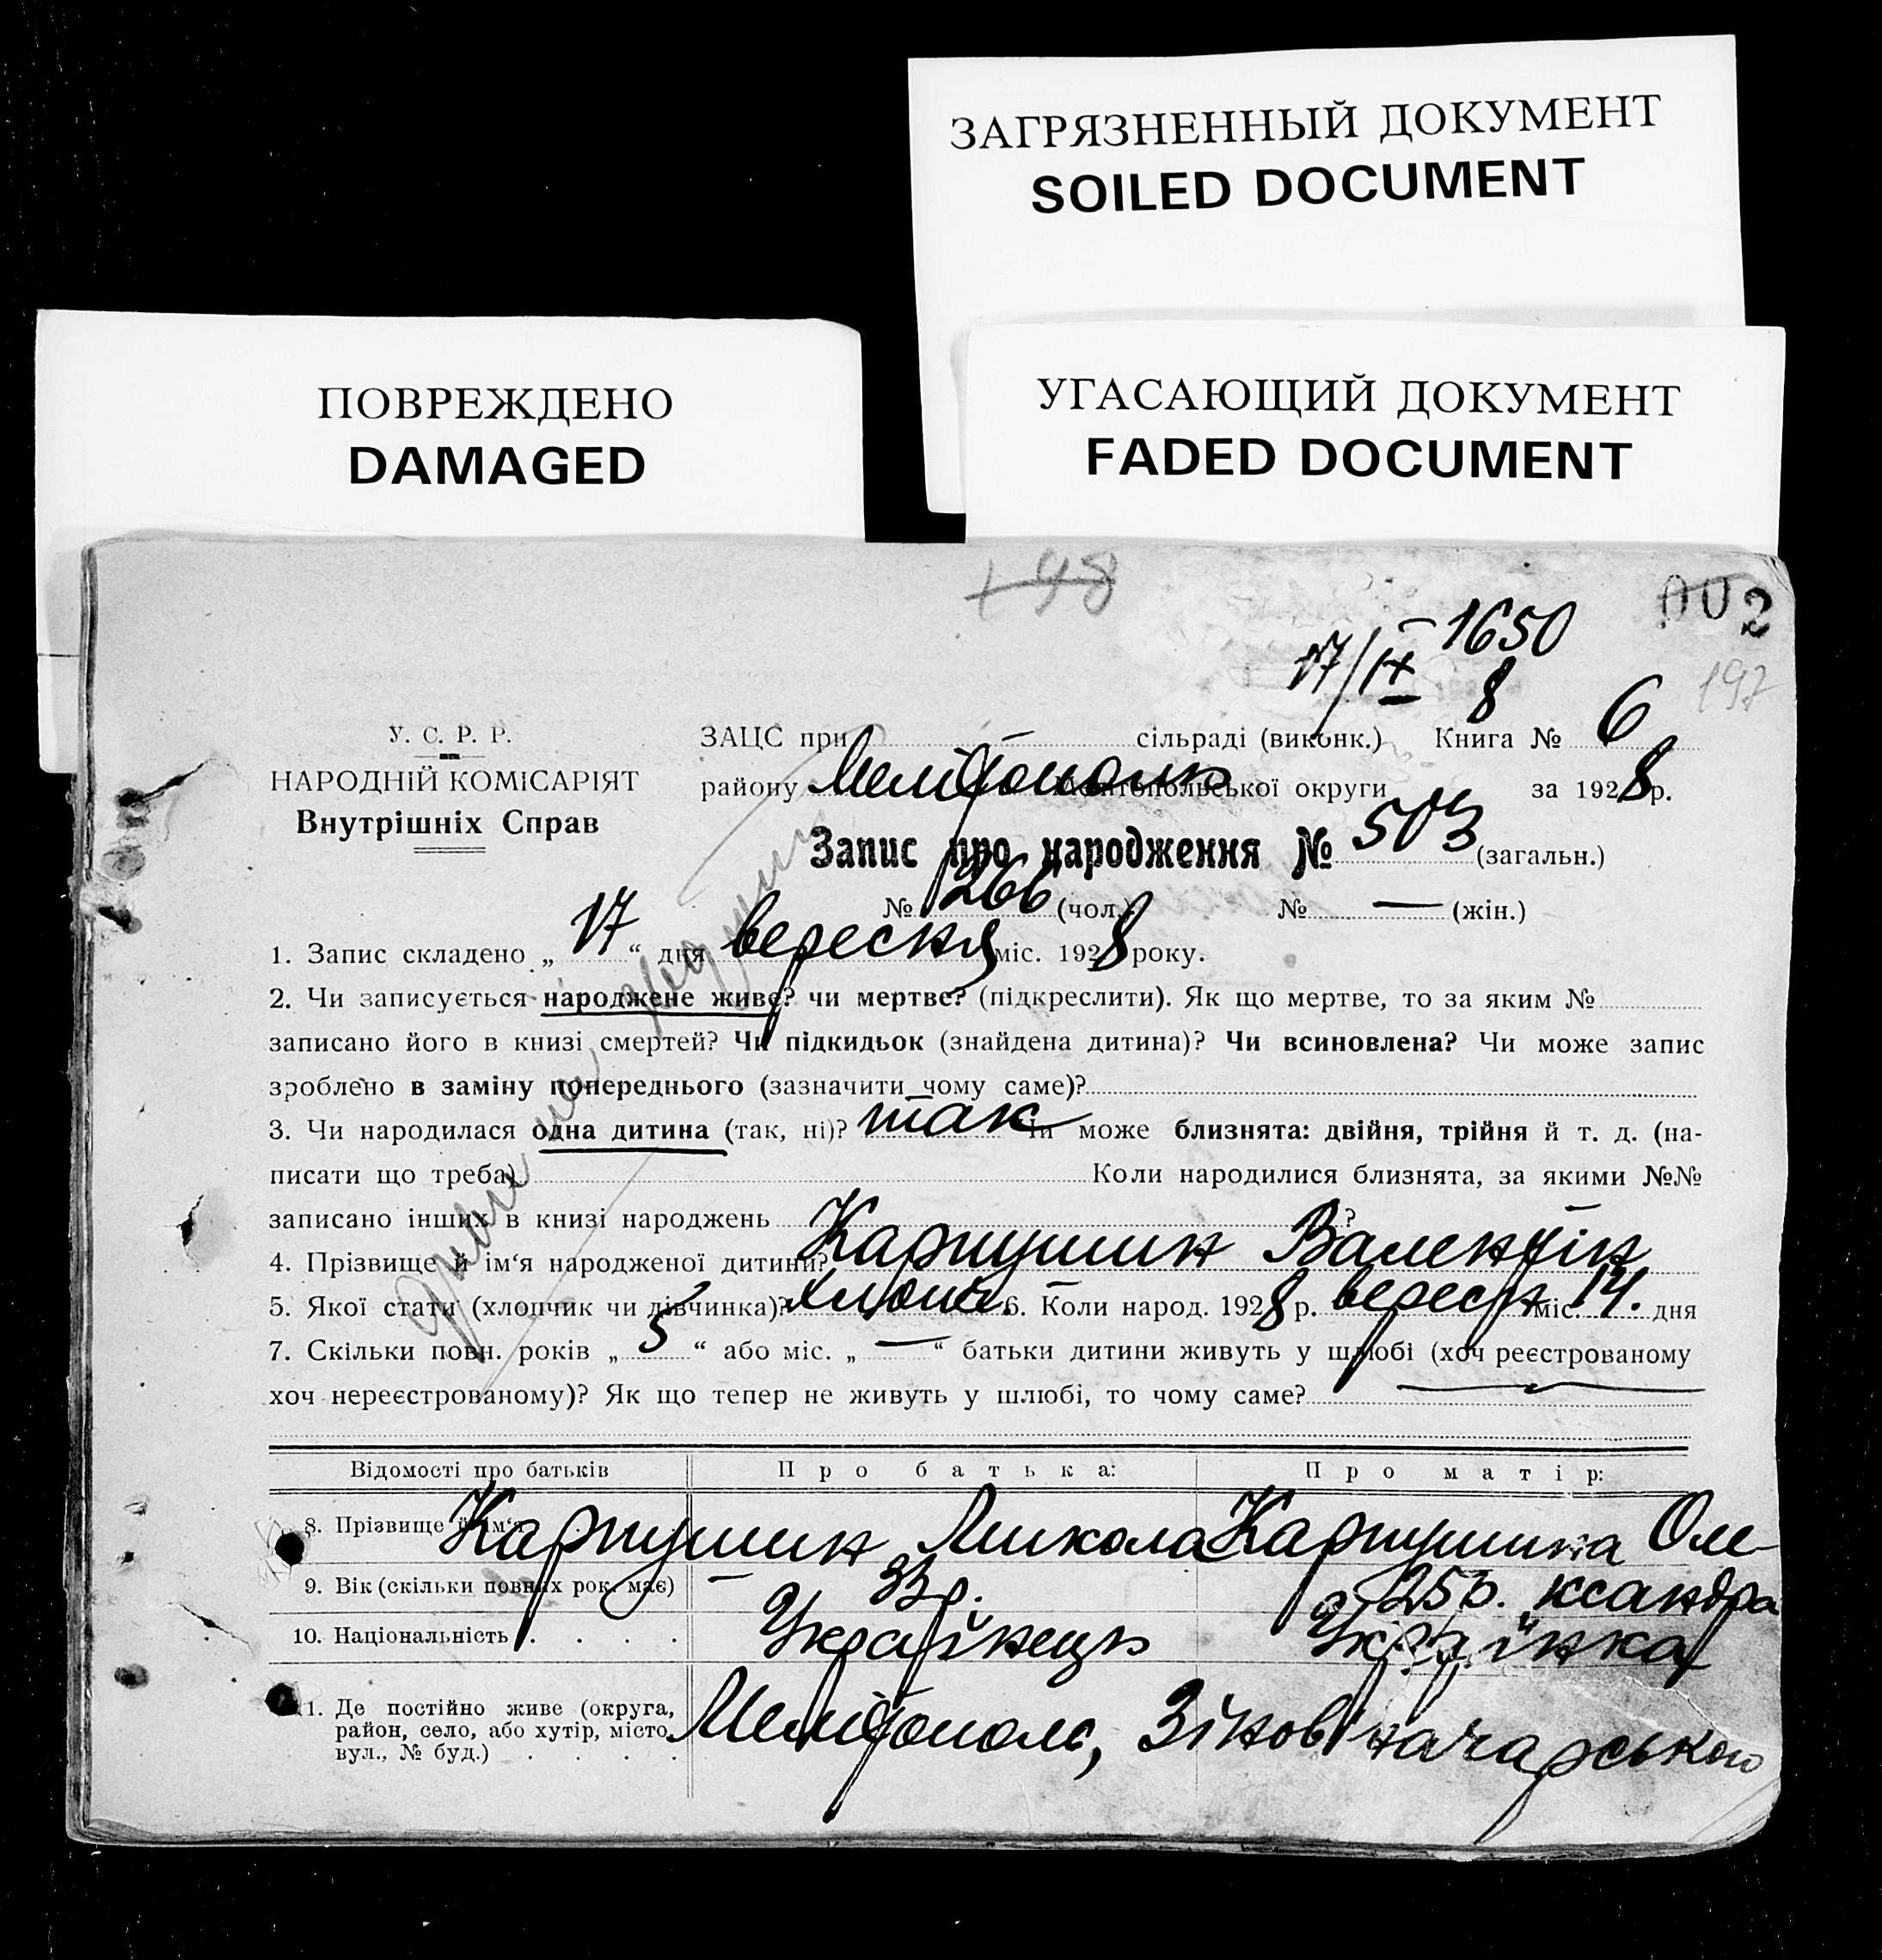 ЗАГРЯЗНЕННЫЙ ДОКУМЕНТ
SOILED DOCUMENT
ПОВРЕЖДЕНО
DAMAGED
УГАСАЮЩИЙ ДОКУМЕНТ
FADED DOCUMENT
+98
002
1650
17/IX 8
197
У. С. Р. Р.
НАРОДНІЙ КОМІСАРІЯТ
Внутрішніх Справ
ЗАЦС при сільраді (виконк.) Книга № 6
району Мелітопольської округи за 1928 р.
Запис про народження № 503 (загальн.)
№ 266 (чол.) № — (жін.)
1. Запис складено „ 17 “ дня вересня міс. 1928 року.
2. Чи записується народжене живе? чи мертве? (підкреслити). Як що мертве, то за яким №
записано його в книзі смертей? Чи підкидьок (знайдена дитина)? Чи всиновлена? Чи може запис
зроблено в заміну попереднього (зазначити чому саме)?
3. Чи народилася одна дитина (так, ні)? так Чи може близнята: двійня, трійня й т. д. (на-
писати що треба) Коли народилися близнята, за якими №№
записано інших в книзі народжень ?
4. Прізвище й ім‘я народженої дитини? Карпушин Валентін
5. Якої стати (хлопчик чи дівчинка)? хлопч. 6. Коли народ. 1928 р. вересн міс. 14. дня
7. Скільки повн. років „ 5 “ або міс. „ — “ батьки дитини живуть у шлюбі (хоч реєстрованому
хоч нереєстрованому)? Як що тепер не живуть у шлюбі, то чому саме?
Відомості про батьків Про батька: Про матір:
8. Прізвище й ім‘я Карпушин Микола Карпушина Оле-
9. Вік (скільки повних рок. має) 33р. 25р. ксандра
10. Національність . . . . Українець Українка
11. Де постійно живе (округа,
район, село, або хутір, місто,
вул., № буд.) . . . .
Мелітополь,